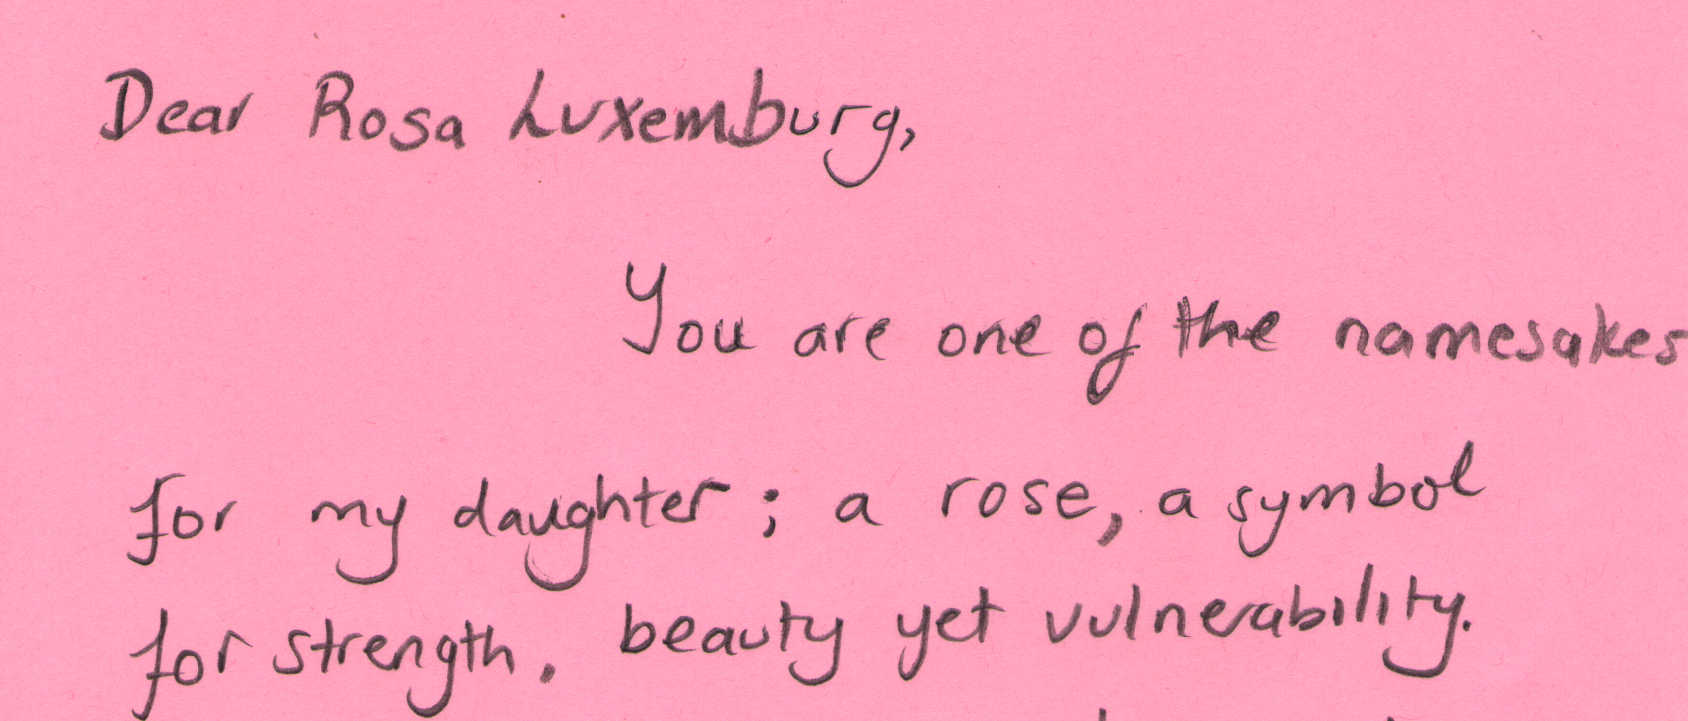 Dear Rosa Luxemburg,
You are one of the namesakes
for my daughter; a rose, a symbol
for strength, beauty yet vulnerability.